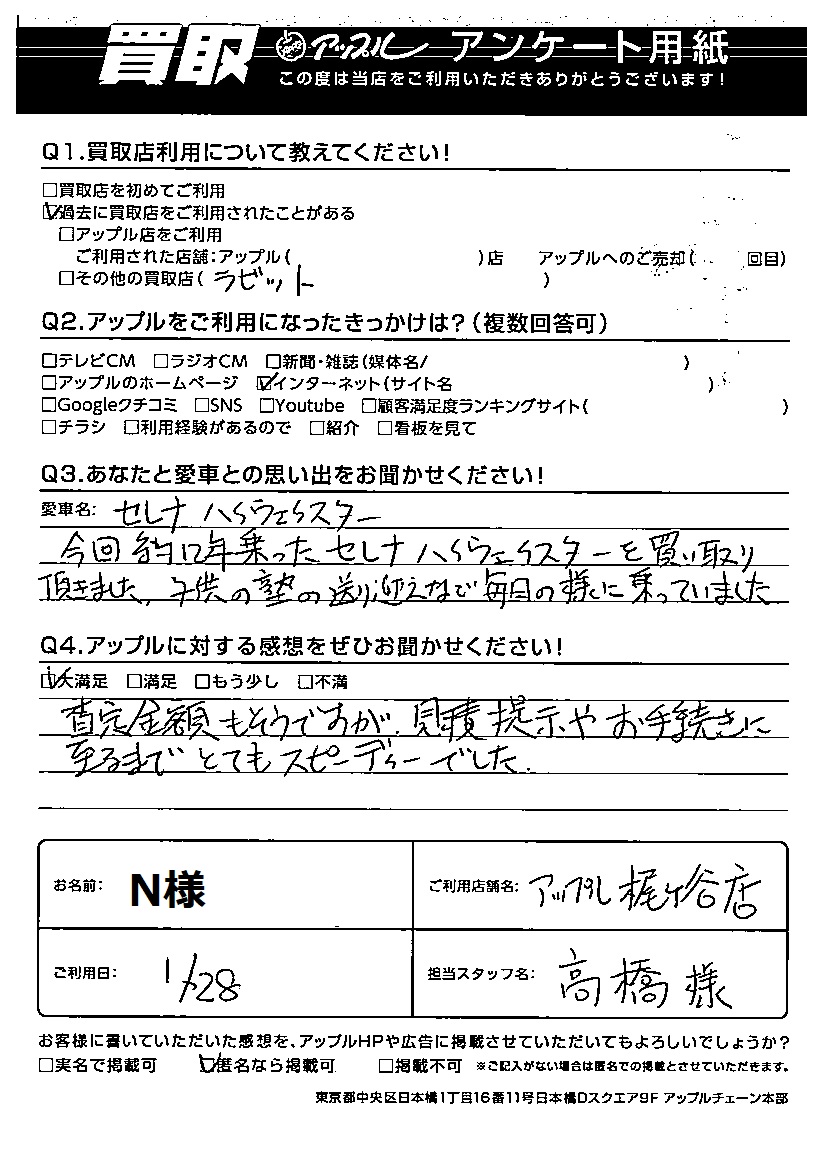 買取 アップル アンケート用紙
この度は当店をご利用いただきありがとうございます!
Q1.買取店利用について教えてください!
□買取店を初めてご利用
☑過去に買取店をご利用されたことがある
□アップル店をご利用
ご利用された店舗:アップル( )店 アップルへのご売却( 回目)
□その他の買取店( ラビット )
Q2.アップルをご利用になったきっかけは?(複数回答可)
□テレビCM □ラジオCM □新聞・雑誌(媒体名/ )
□アップルのホームページ ☑インターネット(サイト名 )
□Googleクチコミ □SNS □Youtube □顧客満足度ランキングサイト( )
□チラシ □利用経験があるので □紹介 □看板を見て
Q3.あなたと愛車との思い出をお聞かせください!
愛車名: セレナ ハイウェイスター
今回 約12年乗ったセレナ ハイウェイスターを買い取り
頂きました。子供の塾の送り迎えなど毎日の様に乗っていました
Q4.アップルに対する感想をぜひお聞かせください!
☑大満足 □満足 □もう少し □不満
査定金額もそうですが、見積提示やお手続きに
至るまでとてもスピーディーでした.
お名前: N様
ご利用店舗名: アップル梶ヶ谷店
ご利用日: 1/28
担当スタッフ名: 高橋 様
お客様に書いていただいた感想を、アップルHPや広告に掲載させていただいてもよろしいでしょうか?
□実名で掲載可 ☑匿名なら掲載可 □掲載不可 ※ご記入がない場合は匿名での掲載とさせていただきます。
東京都中央区日本橋1丁目16番11号日本橋Dスクエア9F アップルチェーン本部